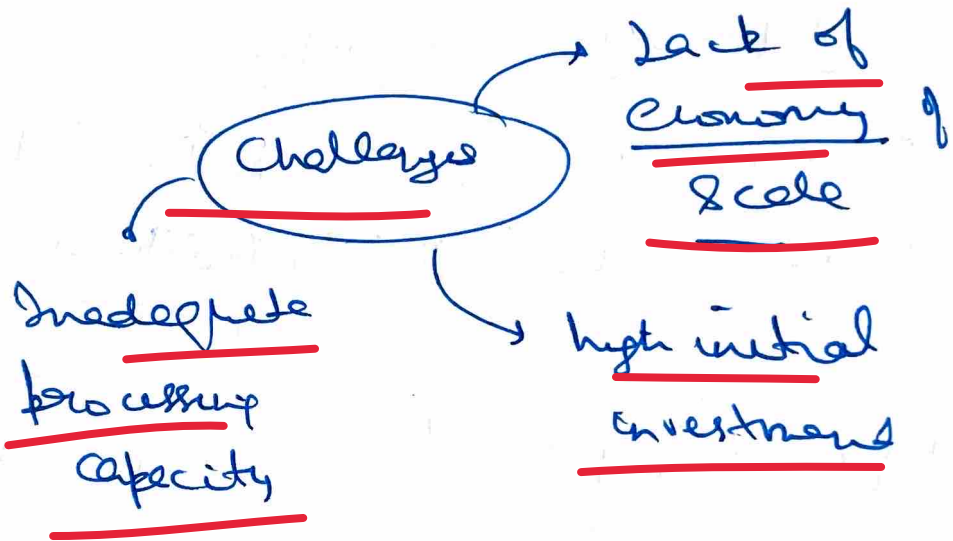 Challenges
Lack of
economy of
Scale
Inadequate
processing
capacity
high initial
investment